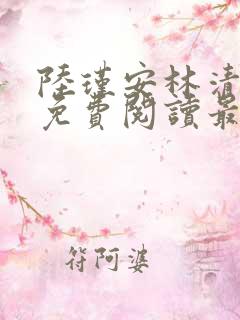 陸瑾安林清
免費閱讀最
符阿婆